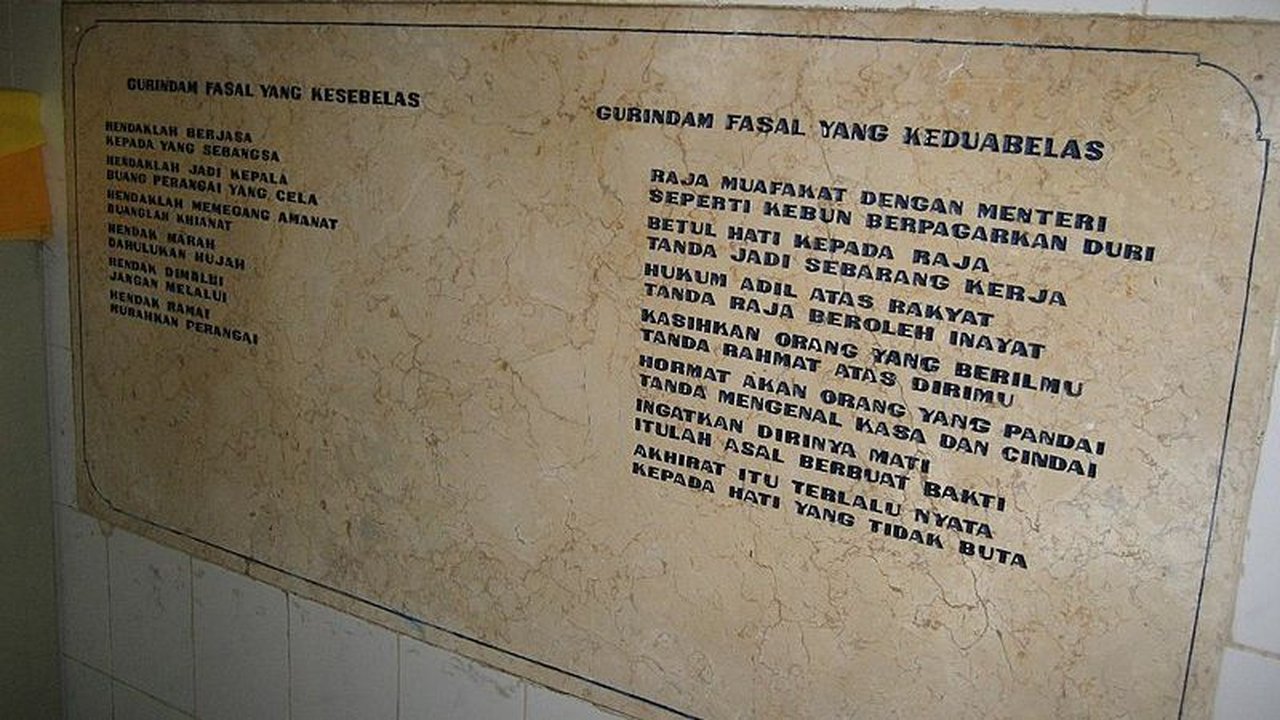 GURINDAM FASAL YANG KESEBELAS
HENDAKLAH BERJASA
KEPADA YANG SEBANGSA
HENDAKLAH JADI KEPALA
BUANG PERANGAI YANG CELA
HENDAKLAH MEMEGANG AMANAT
BUANGLAH KHIANAT
HENDAK MARAH
DAHULUKAN HUJAH
HENDAK DIMALUI
JANGAN MELALUI
HENDAK RAMAI
MURAHKAN PERANGAI
GURINDAM FASAL YANG KEDUABELAS
RAJA MUAFAKAT DENGAN MENTERI
SEPERTI KEBUN BERPAGARKAN DURI
BETUL HATI KEPADA RAJA
TANDA JADI SEBARANG KERJA
HUKUM ADIL ATAS RAKYAT
TANDA RAJA BEROLEH INAYAT
KASIHKAN ORANG YANG BERILMU
TANDA RAHMAT ATAS DIRIMU
HORMAT AKAN ORANG YANG PANDAI
TANDA MENGENAL KASA DAN CINDAI
INGATKAN DIRINYA MATI
ITULAH ASAL BERBUAT BAKTI
AKHIRAT ITU TERLALU NYATA
KEPADA HATI YANG TIDAK BUTA